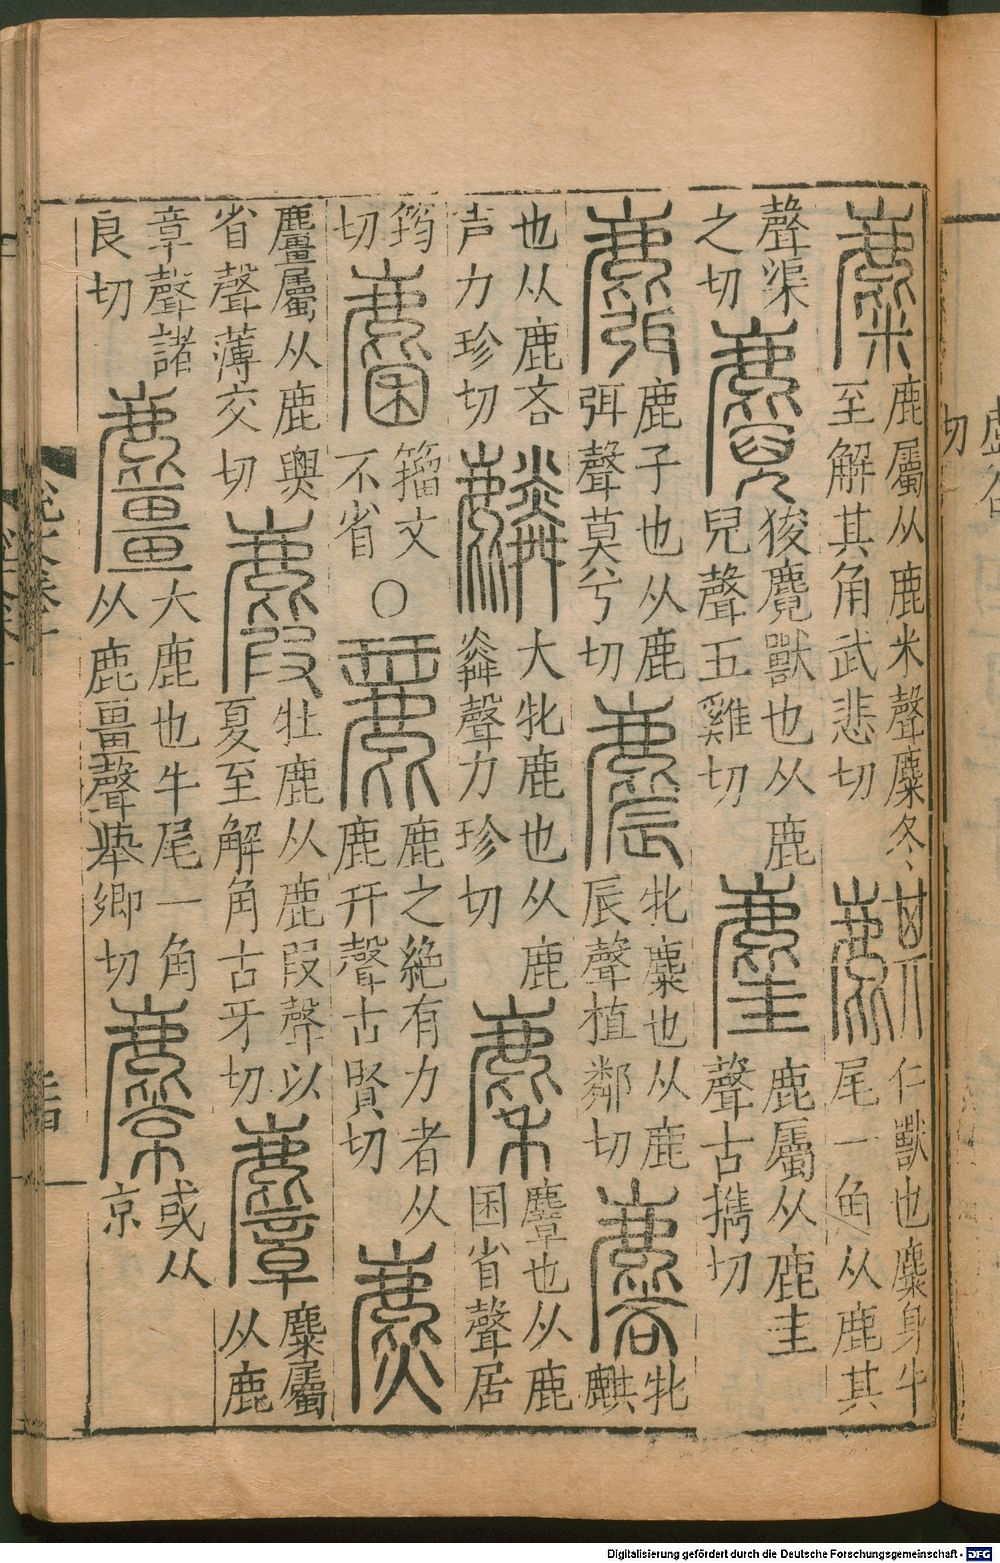 麋鹿屬从鹿米聲麋冬至解其角武悲切麒仁獸也麋身牛尾一角从鹿其
聲渠之切麑狻麑獸也从鹿兒聲五雞切𪊧鹿屬从鹿圭聲古攜切
麛鹿子也从鹿弭聲莫兮切麎牝麋也从鹿辰聲植鄰切麐牝麒
也从鹿吝声力珍切麟大牝鹿也从鹿粦聲力珍切麇麞也从鹿囷省聲居
筠切麕籀文不省○麉鹿之絶有力者从鹿幵聲古賢切麃
麠屬从鹿㷼省聲薄交切麚牡鹿从鹿叚聲以夏至解角古牙切麞麋屬从鹿
章聲諸良切麠大鹿也牛尾一角从鹿畺聲舉卿切麖或从京
Digitalisierung gefördert durch die Deutsche Forschungsgemeinschaft - DFG